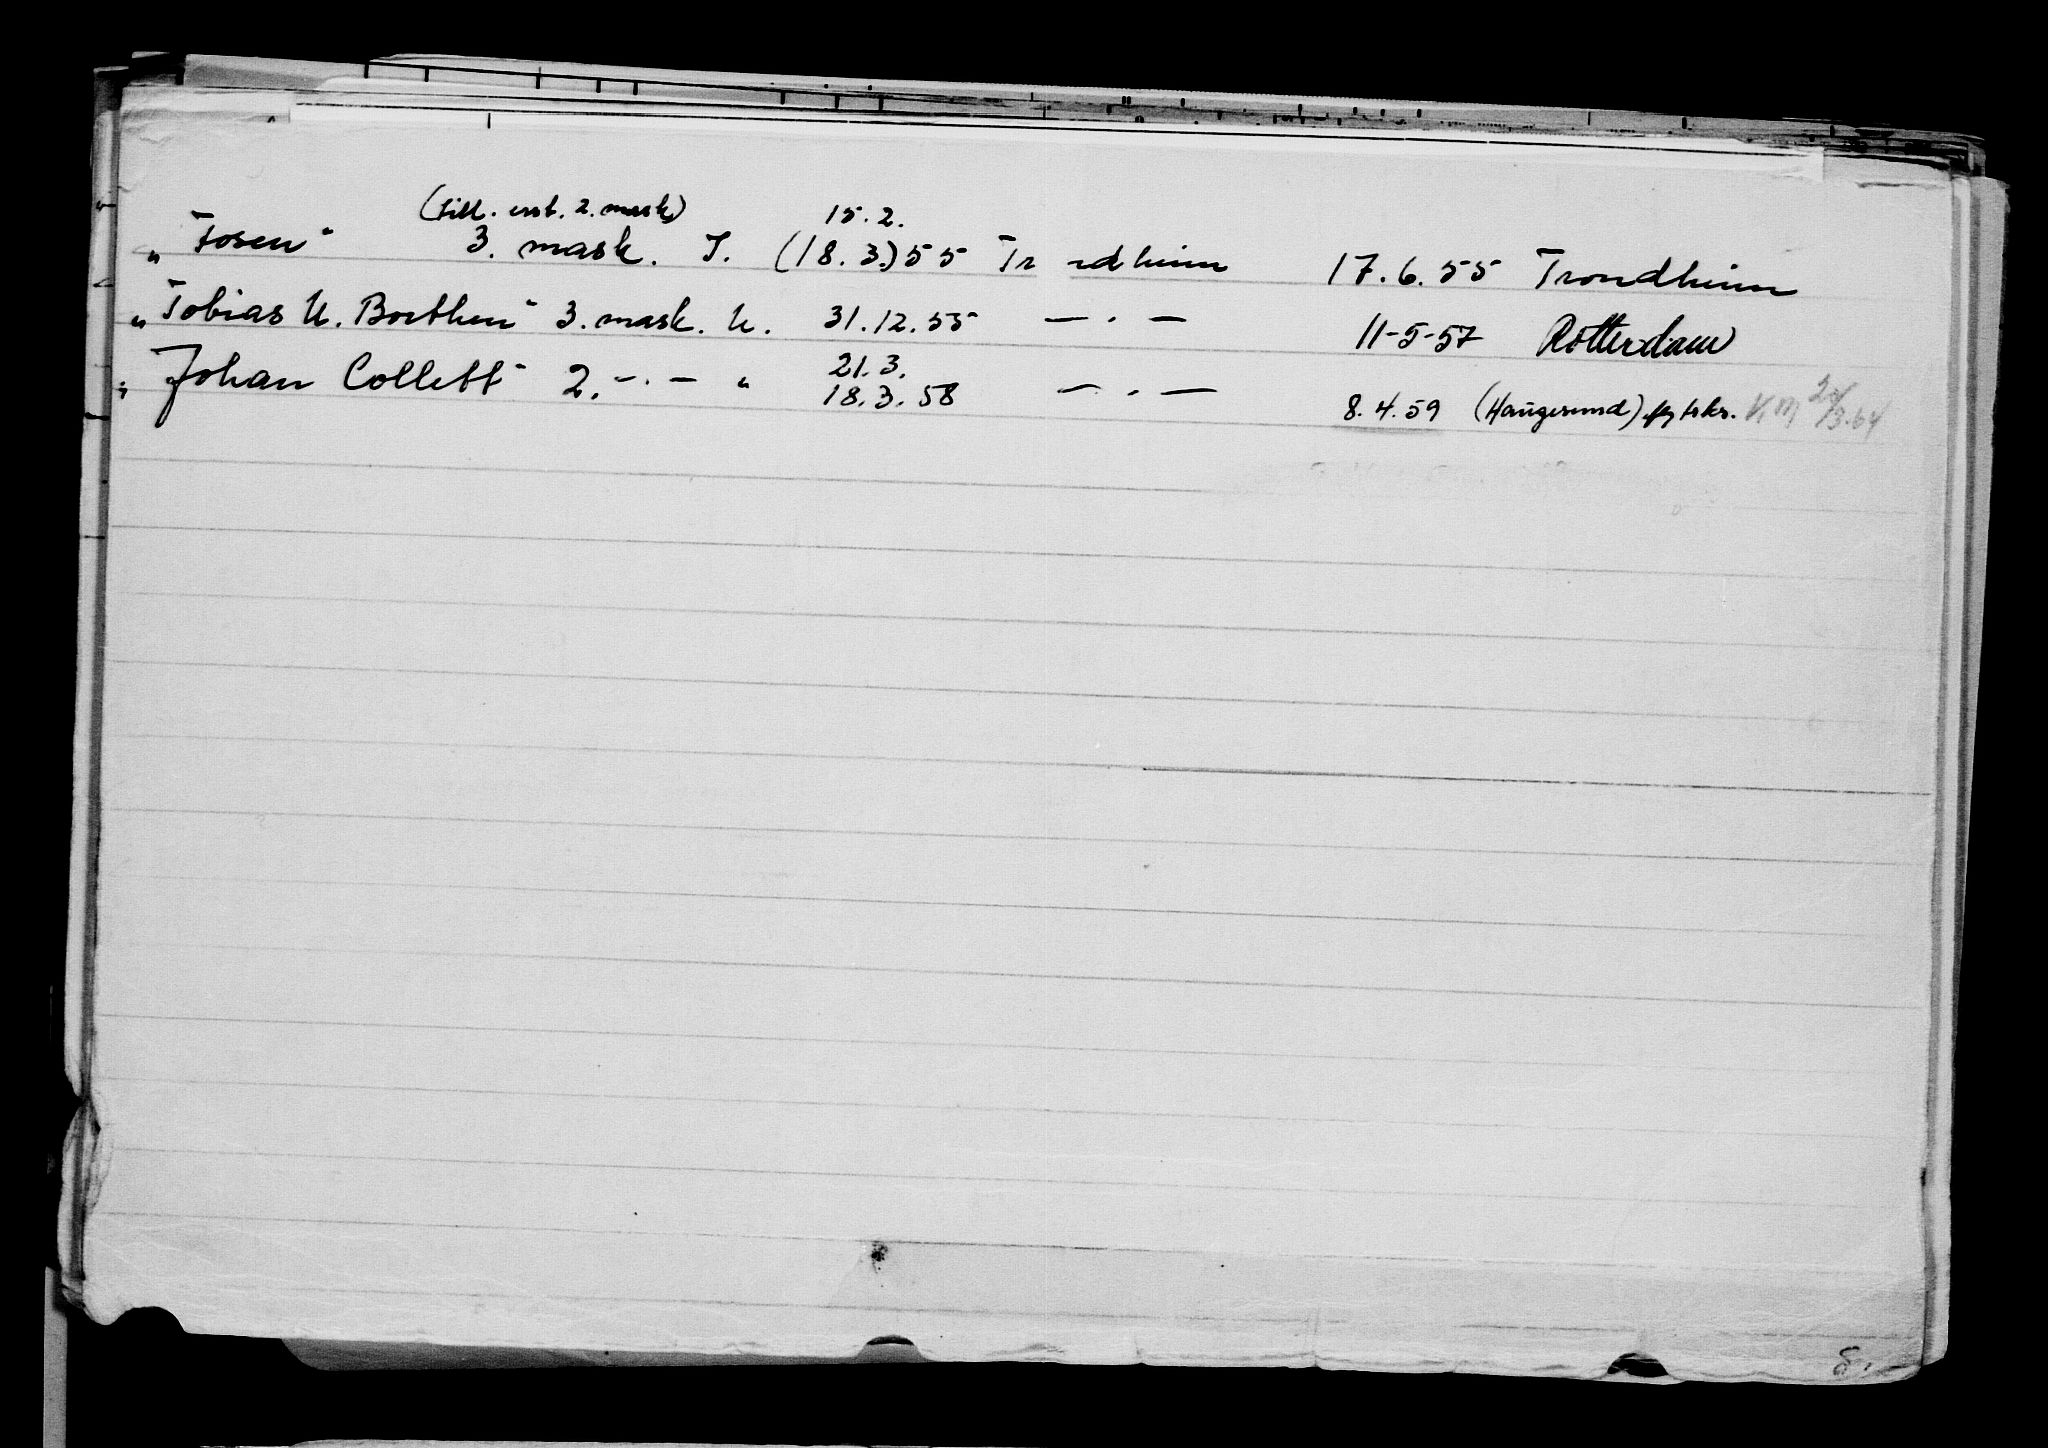 (till. ... 2. mask) 15.2.
„Fosen" 3. mask. I. (18.3.)55 Tr ndheim 17.6.55 Trondheim
„Tobias U. Borthen" 3. mask. U. 31.12.55 — . — 11-5-57 Rotterdam
21.3.
„Johan Collett" 2. — . — " 18.3.58 — . — 8.4.59 (Haugesund)